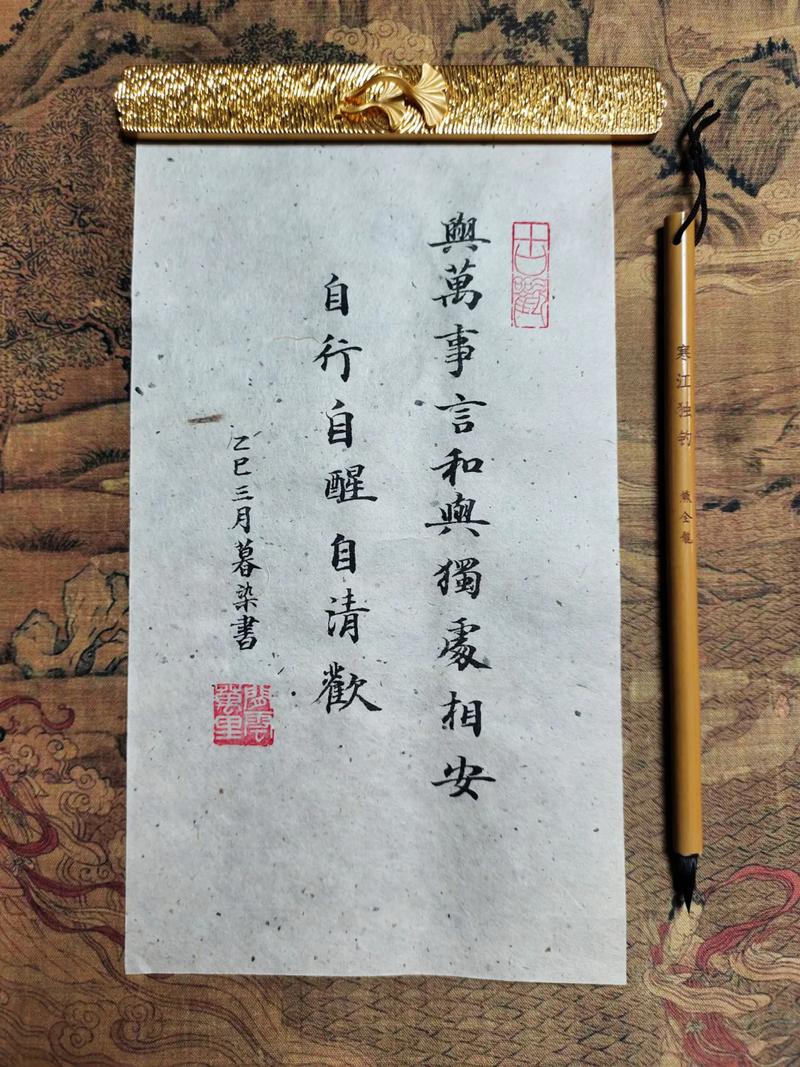 與萬事言和與獨處相安
自行自醒自清歡
乙巳三月暮染書
寒江独钓